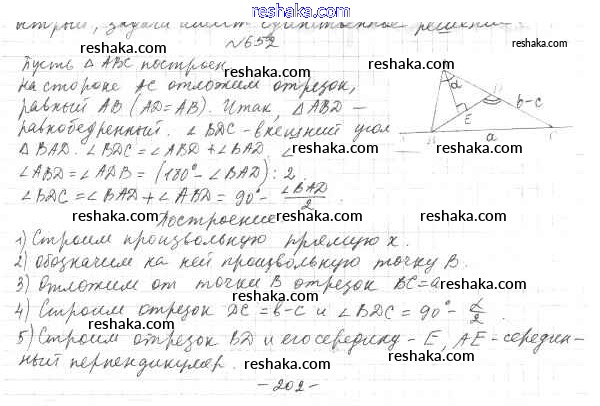 reshaka.com
острый, задача имеет единственное решение.
reshaka.com
№652
Пусть △ ABC построен,
на стороне AC отложим отрезок,
равный AB (AD=AB). Итак, △ABD –
равнобедренный. ∠BDC – внешний угол
△ BAD. ∠BDC = ∠ABD + ∠BAD, ∠
∠ABD = ∠ADB = (180° – ∠BAD) : 2.
∠BDC = ∠BAD + ∠ABD = 90° – ∠BAD/2.
α
D
b-c
E
B
a
C
Построение
1) Строим произвольную прямую x.
2) Обозначим на ней произвольную точку B.
3) Отложим от точки B отрезок BC=a.
4) Строим отрезок DC = b-c и ∠BDC = 90° – α/2.
5) Строим отрезок BD и его середину – E, AE – середин-
ный перпендикуляр.
– 202 –
reshaka.com
reshaka.com
reshaka.com
reshaka.com
reshaka.com
reshaka.com
reshaka.com
reshaka.com
reshaka.com
reshaka.com
reshaka.com
reshaka.com
reshaka.com
reshaka.com